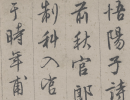 悟陽子詩
前秋官郎
制科入官
于時年甫